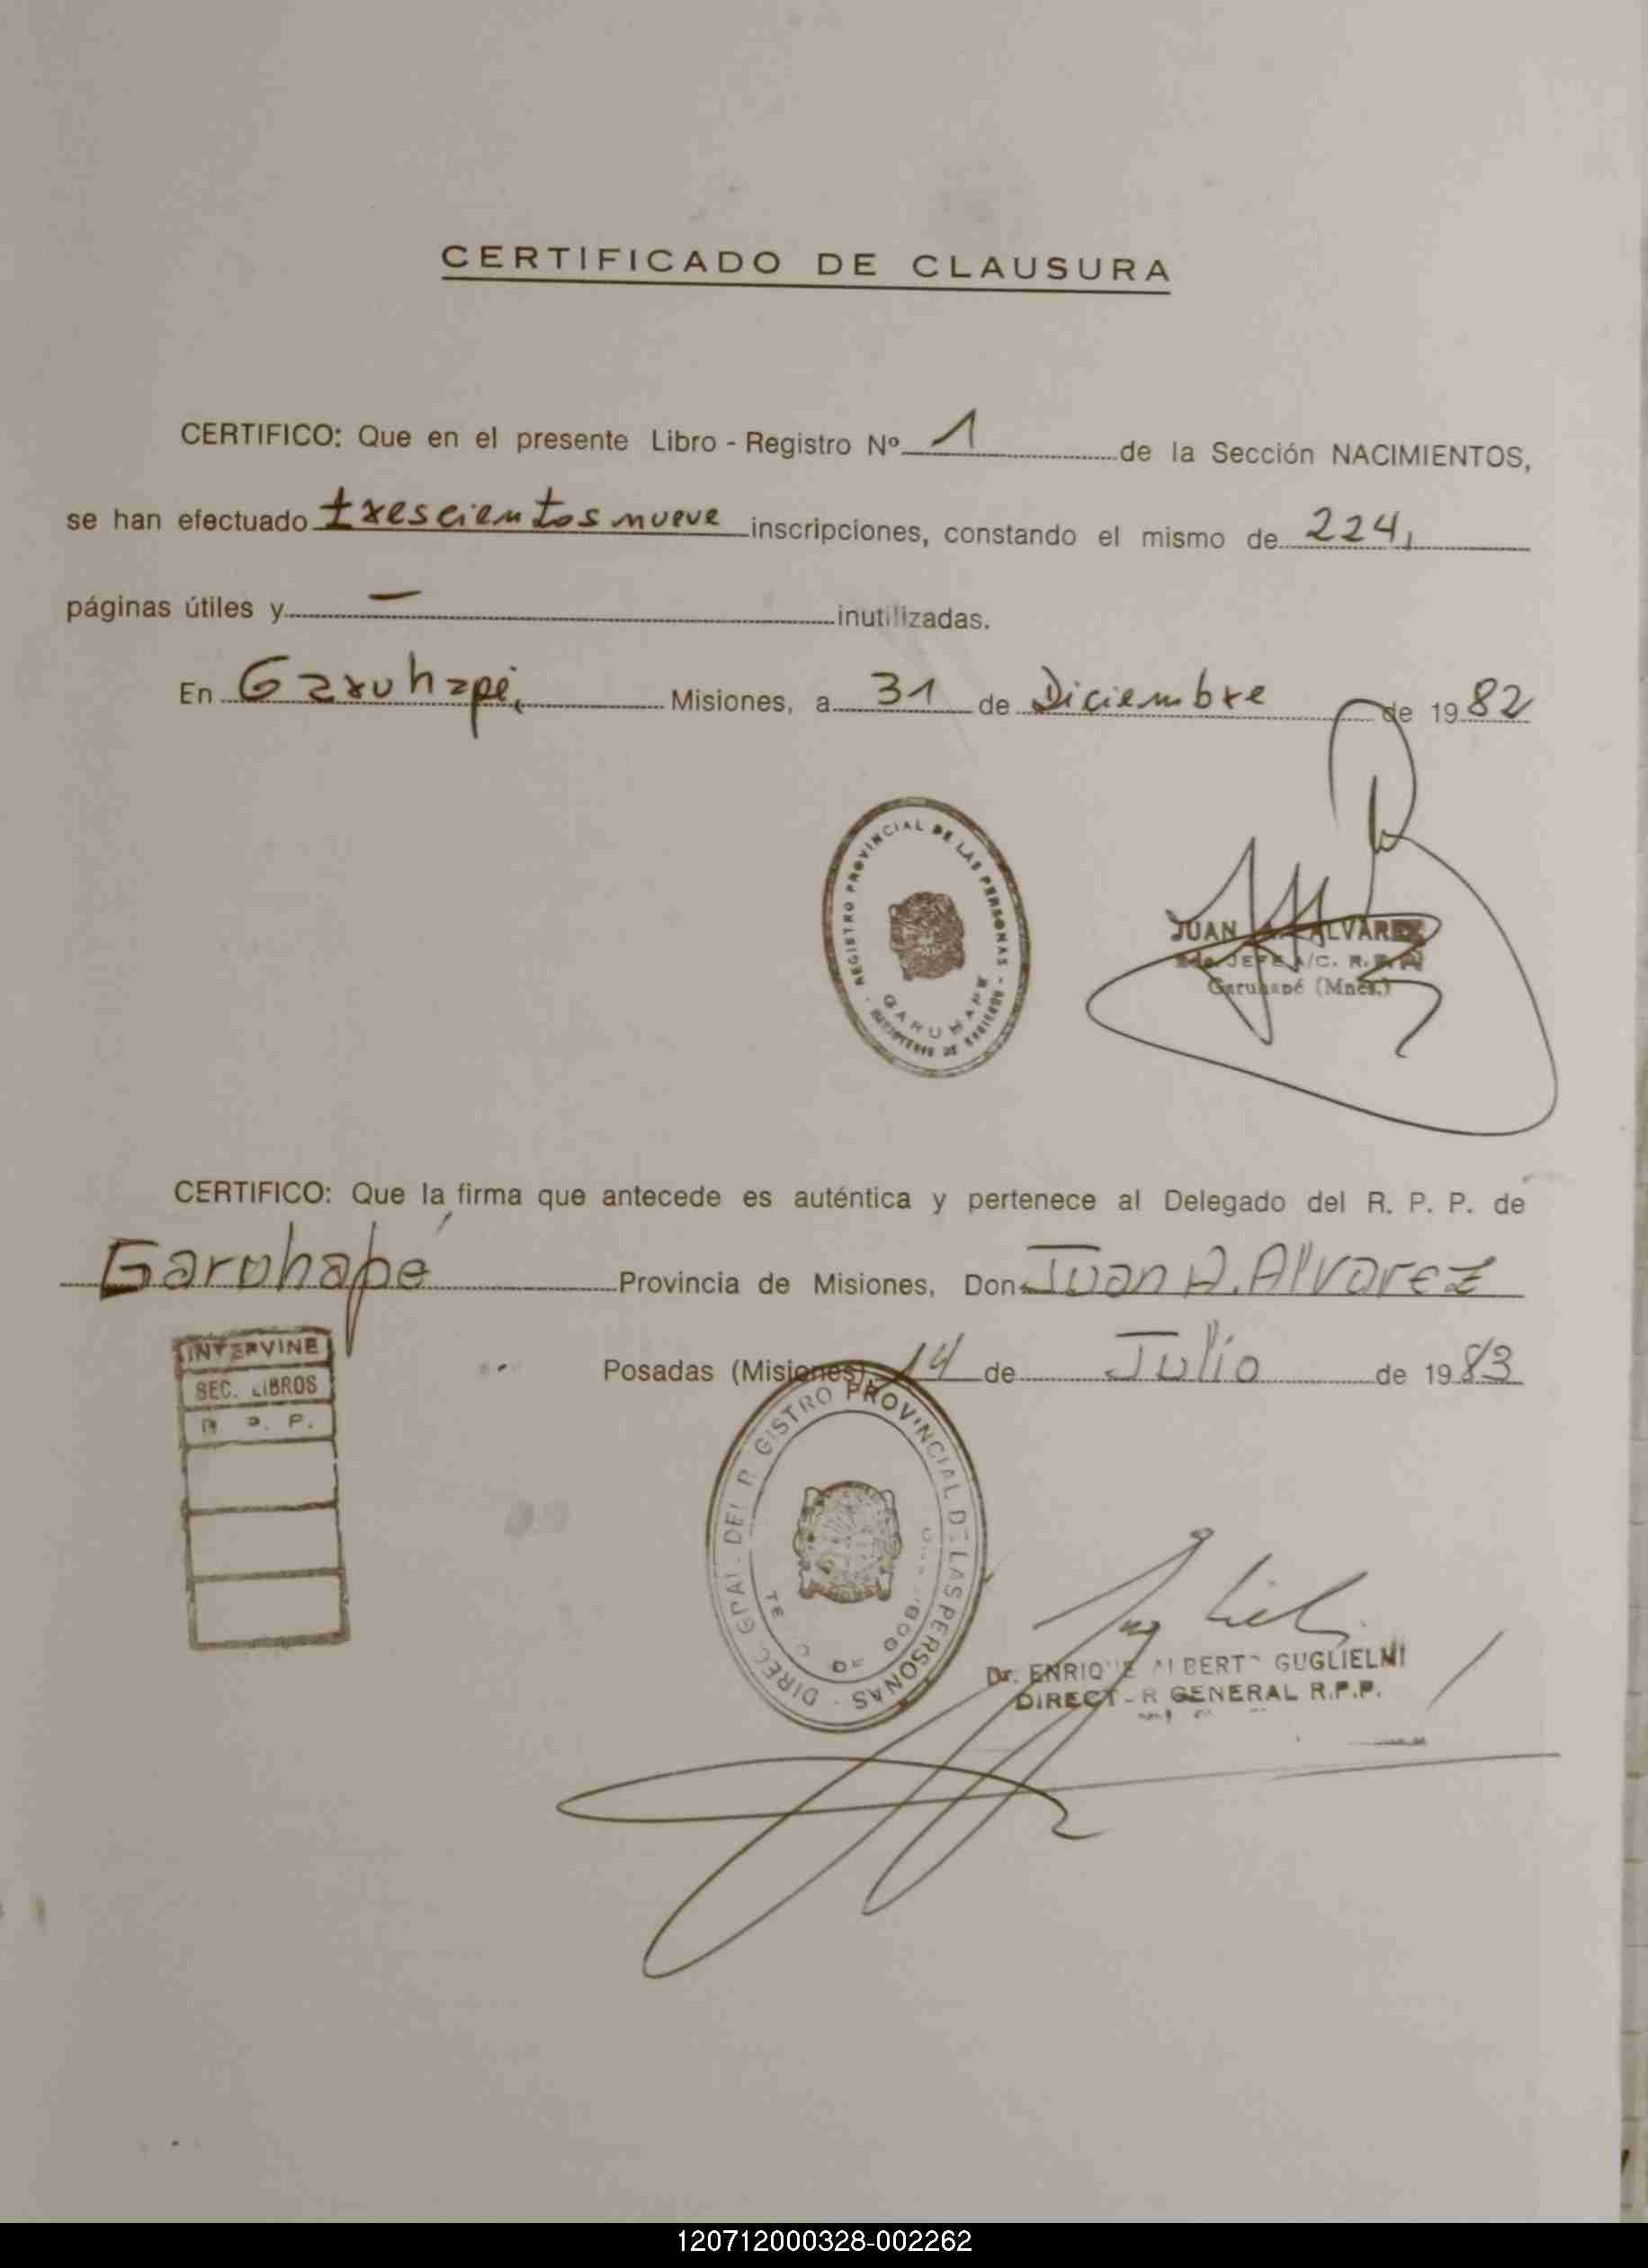 CERTIFICADO DE CLAUSURA
CERTIFICO: Que en el presente Libro - Registro Nº 1 de la Sección NACIMIENTOS,
se han efectuado trescientos nueve inscripciones, constando el mismo de 224,
páginas útiles y — inutilizadas.
En Garuhapé, Misiones, a 31 de Diciembre de 1982
REGISTRO PROVINCIAL DE LAS PERSONAS
GARUHAPE
JUAN ALVAREZ
JEFE A/C. R.
Garuhapé (Mnes.)
CERTIFICO: Que la firma que antecede es auténtica y pertenece al Delegado del R. P. P. de
Garuhapé Provincia de Misiones, Don Juan A. Alvarez
Posadas (Misiones), 14 de Julio de 1983
INTERVINE
SEC. LIBROS
R. P. P.
DIREC. GRAL. DEL REGISTRO PROVINCIAL DE LAS PERSONAS
DE GOB
Dr. ENRIQUE ALBERTO GUGLIELMI
DIRECTOR GENERAL R.P.P.
120712000328-002262